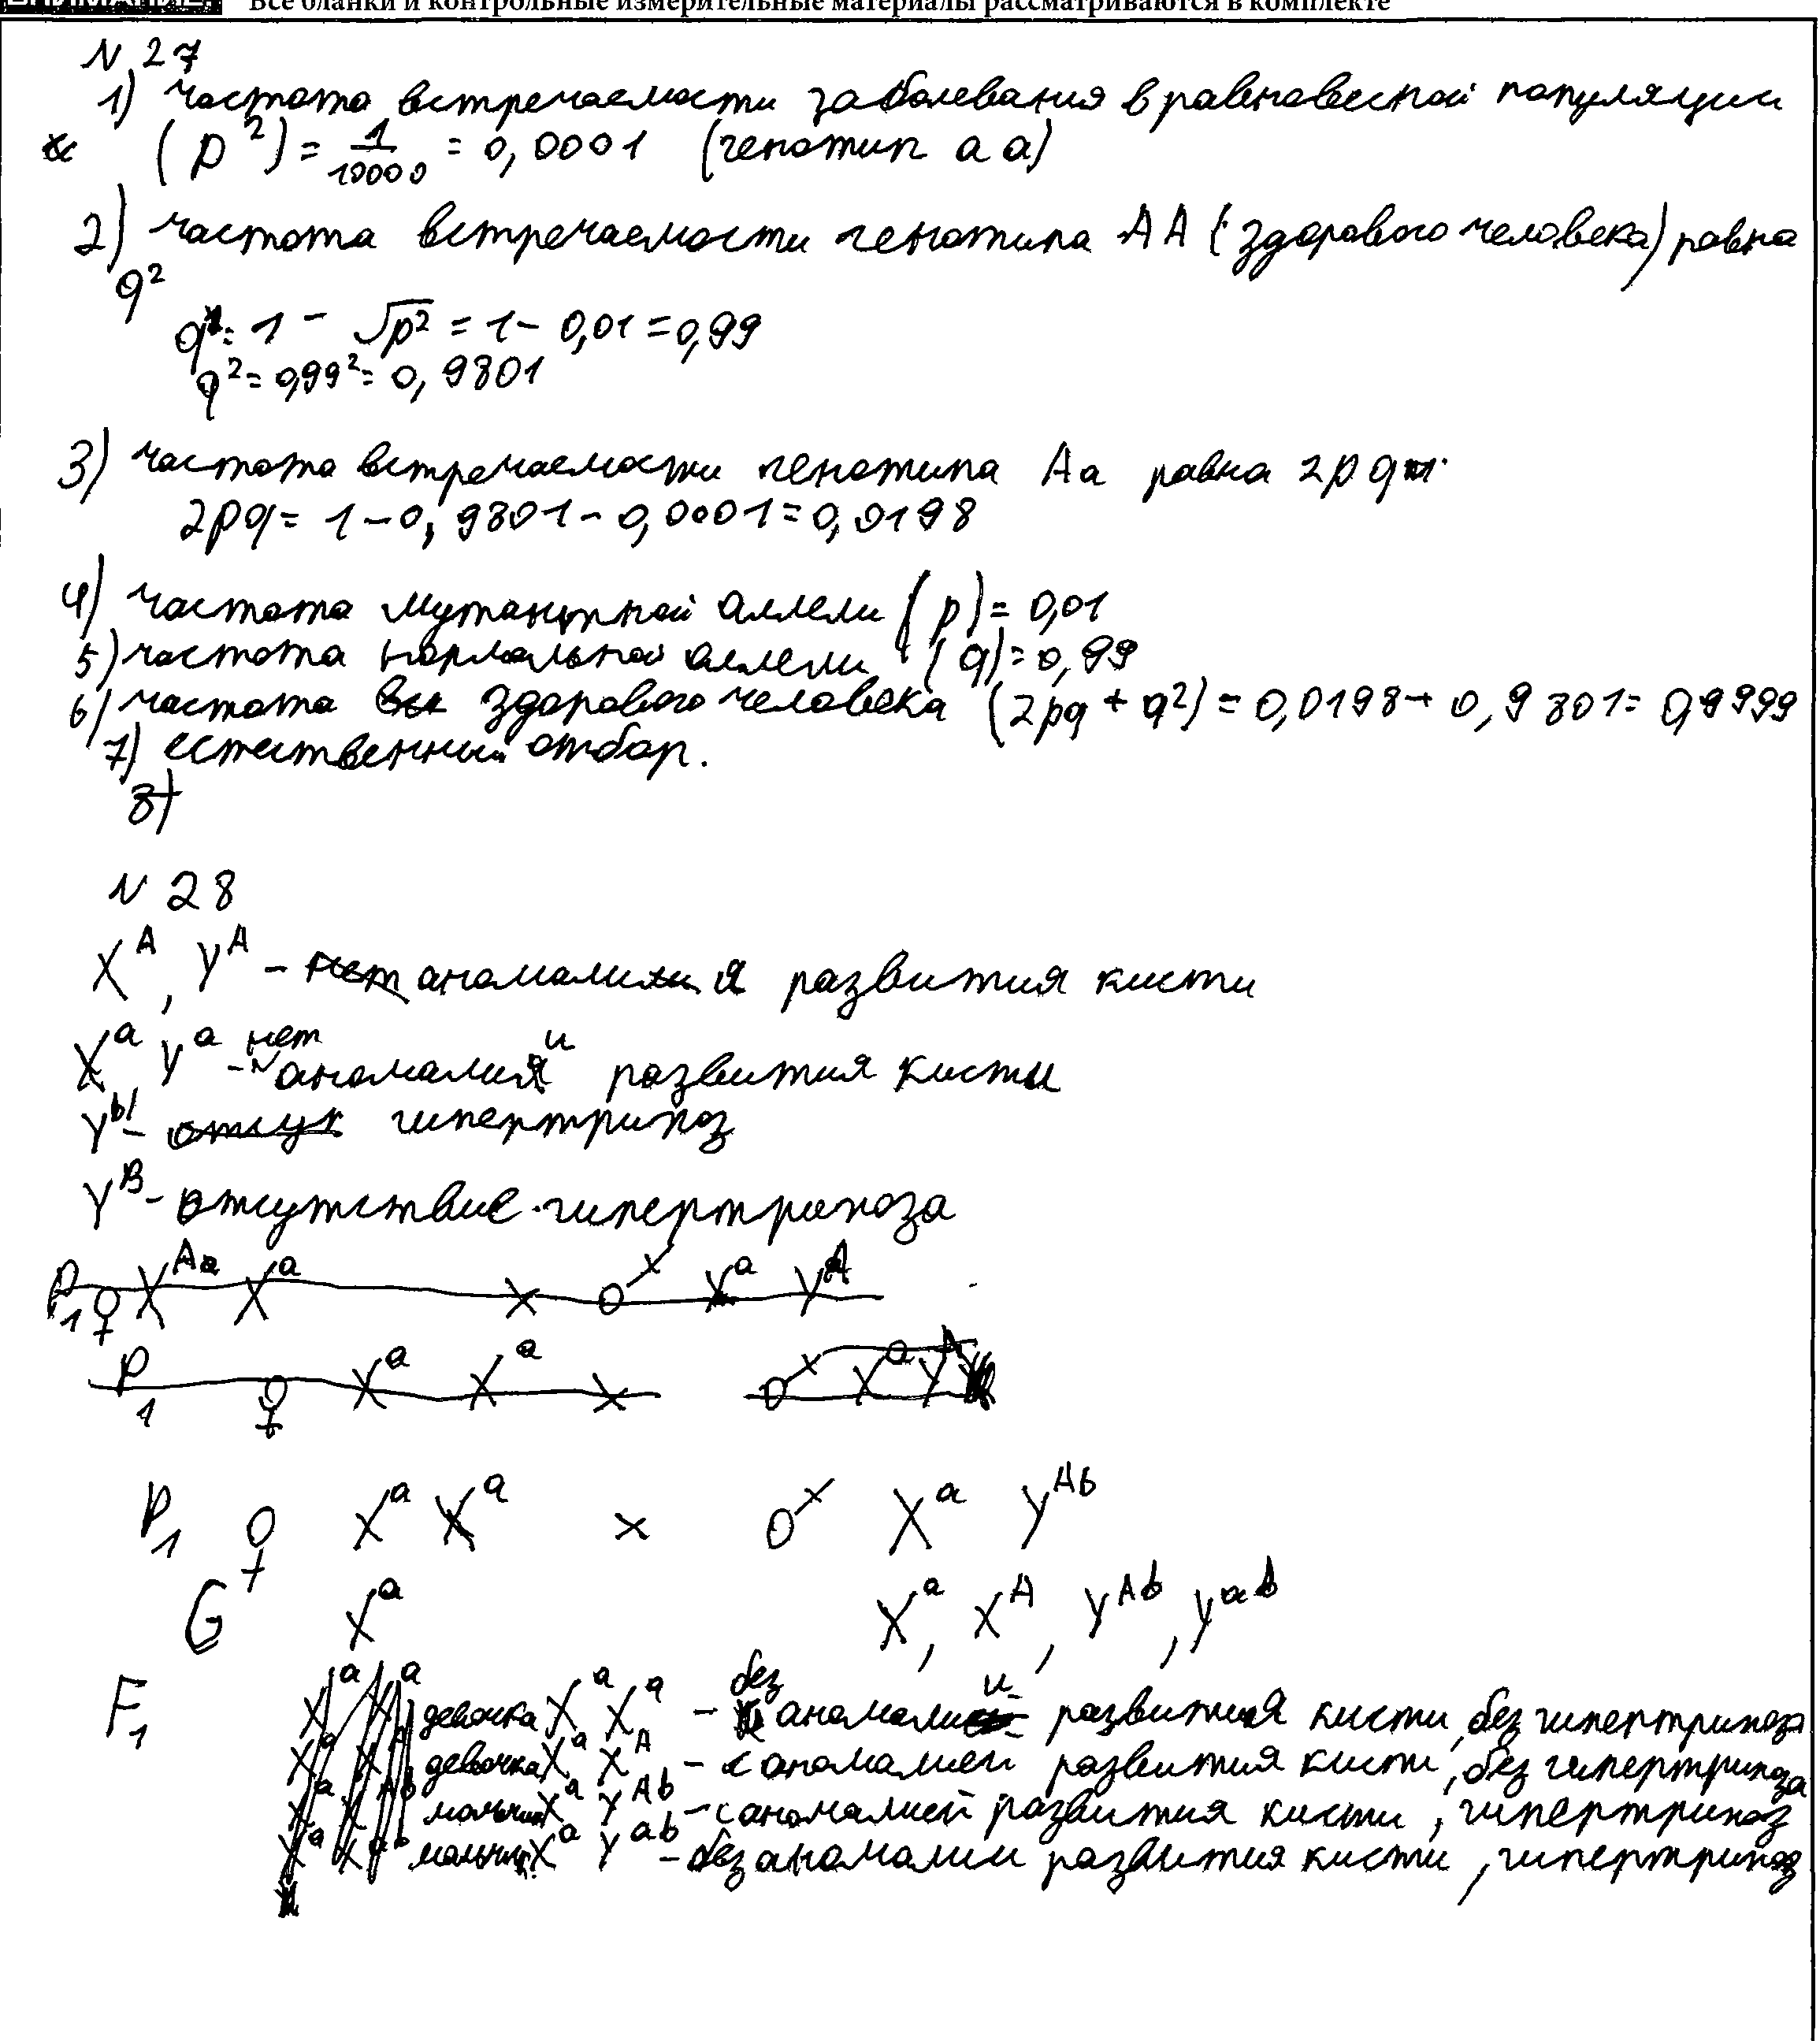 Все бланки и контрольные измерительные материалы рассматриваются в комплекте
N 27
1) частота встречаемости заболевания в равновесной популяции
(p²) = 1/10000 = 0,0001 (генотип аа)
2) частота встречаемости генотипа АА (здорового человека) равна
q²
q = 1 - √p² = 1 - 0,01 = 0,99
q² = 0,99² = 0,9801
3) частота встречаемости генотипа Аа равна 2pq
2pq = 1 - 0,9801 - 0,0001 = 0,0198
4) частота мутантной аллели (p) = 0,01
5) частота нормальной аллели (q) = 0,99
6) частота здорового человека (2pq + q²) = 0,0198 + 0,9801 = 0,9999
7) естественный отбор.
8)
N 28
X^A, Y^A - аномалия развития кисти
X^a Y^a - нет аномалии развития кисти
Y^b - гипертрихоз
Y^B - отсутствие гипертрихоза
P₁ ♀ X^Aa X^a × ♂ X^a Y^A
P₁ ♀ X^a X^a × ♂ X^a Y^A
P₁ ♀ X^a X^a × ♂ X^a Y^Ab
G X^a X^a, X^A, Y^Ab, Y^ab
F₁ девочка X^a X^a - без аномалии развития кисти, без гипертрихоза
девочка X^a X^A - с аномалией развития кисти, без гипертрихоза
мальчик X^a Y^Ab - с аномалией развития кисти, гипертрихоз
мальчик X^a Y^ab - без аномалии развития кисти, гипертрихоз